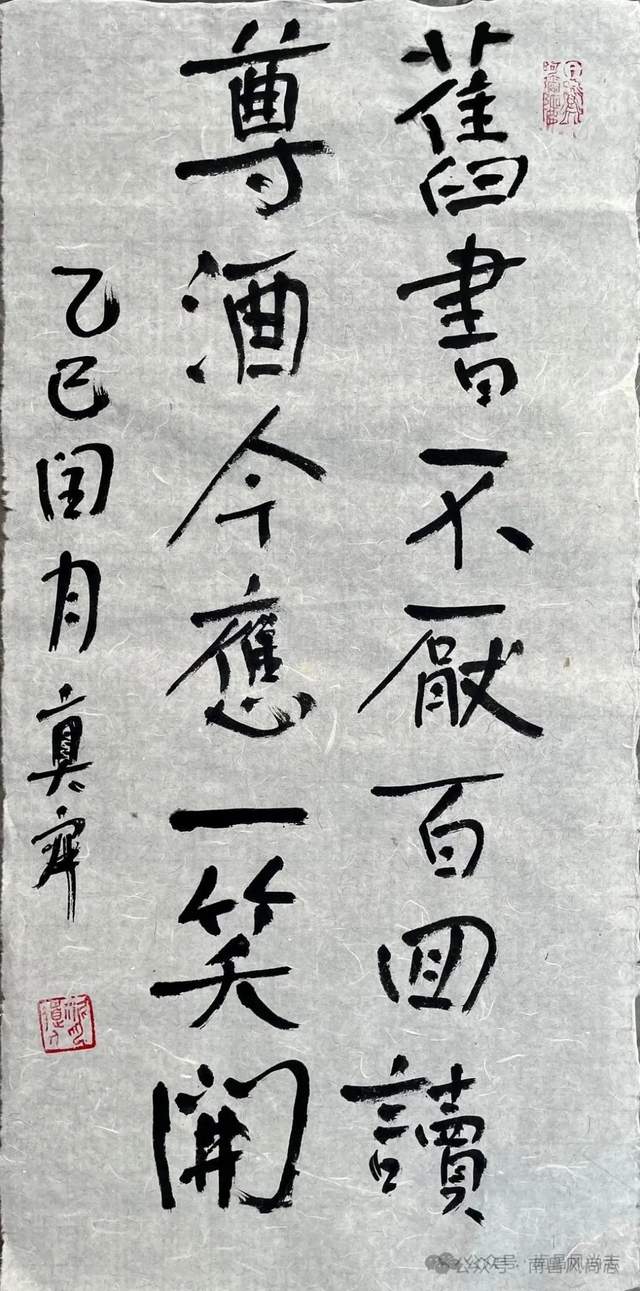 舊書不厭百回讀
尊酒今應一笑開
乙巳閏月真齋
公众号·南昌风尚志